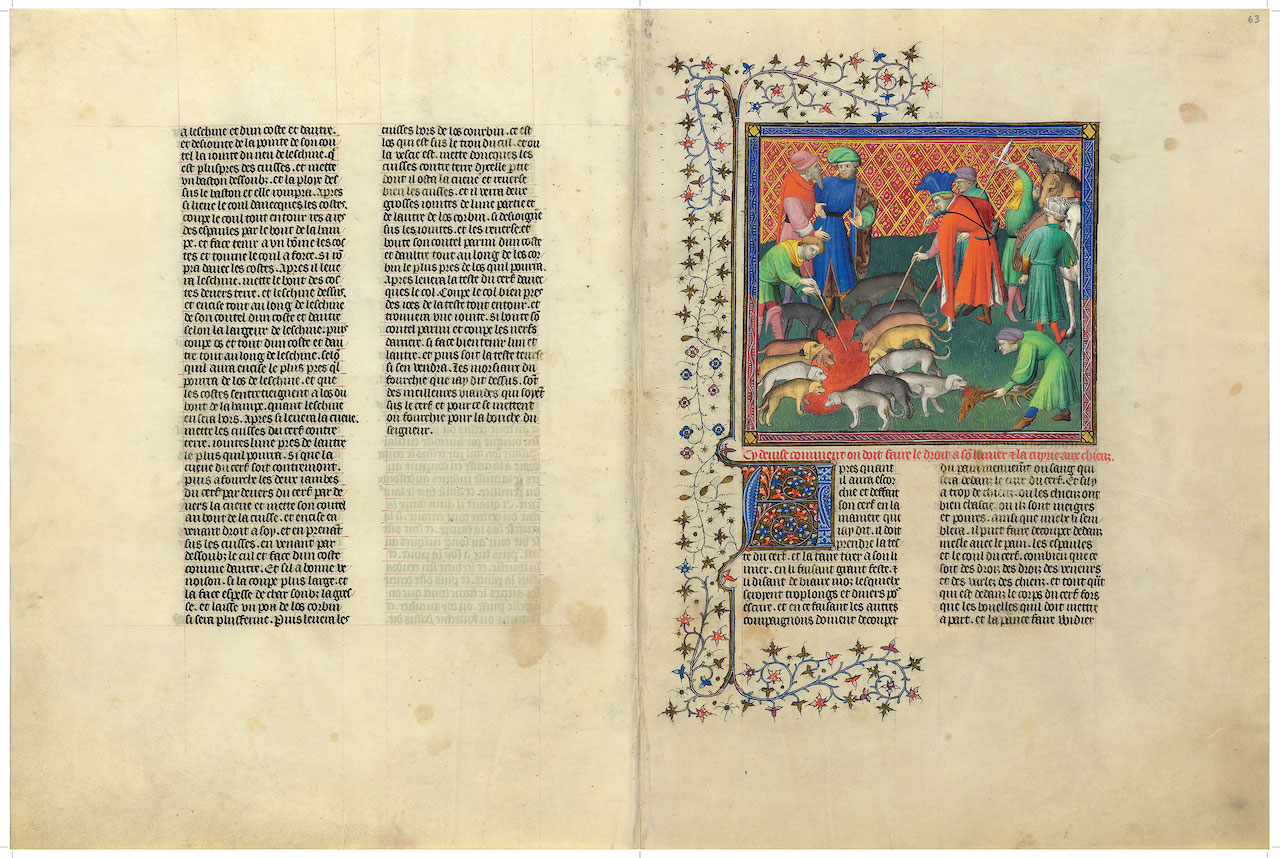 a leschine et dun coste et dautre.
et desiointe de la pointe de son cou
tel la iointe du neu de leschine. q̄
est pluspres des cuisses. et mette
vn baston dessoubz. et la ploye des
sus le baston et elle rompra. Apres
si lieue le coul dauecques les costes.
coupe le coul tout entour res a res
des espaules par le bout de la ham
pe. et face tenir a vn hōme les cos
tes et tourne le coul a force. si rō
pra dauec les costes. Apres il leue
ra leschine. mette le bout des cos
tes deuers terre. et leschine dessus.
et encise tout au long de leschine
de son coutel dun coste et dautre
selon la largeur de leschine. puis
coupe os et tout dun coste et dau
tre tout au long de leschine. selō
quil aura encise le plus pres ql̄
pourra de los de leschine. et que
les costes sentretieignent a los du
bout de la hampe. quant leschine
en sera hors. Apres si leuera la cueue.
mette les cuisses du cerf contre
terre. iointes lune pres de lautre
le plus quil pourra. si que la
cueue du cerf soit contremont.
puis afourche les deux iambes
du cerf par deuers du cerf par de
uers la cueue et mette son coutel
au bout de la cuisse. et encise en
venant droit a soy. et en prenāt
sus les cuisses. en venant par
dessoubz le cul et face dun coste
comme dautre. Et sil a bonne ve
noison. si la coupe plus large. et
la face espesse de char soubz la gres
se. et laisse vn pou de los corbin
si sera plusferme. Puis leuera les
cuisses hors de los courbin. ce est
los qui est sus le trou du cul. et ou
la vescie est. mette doncques les
cuisses contre terre dycelle ptie
dont il osta la cueue et reuerse
bien les cuisses. et il verra deux
grosses iointes de lune partie et
de lautre de los corbin. si desioigne
sus les iointes. et les reuerse. et
boute son coutel parmi dun coste
et daultre tout au long de los cor
bin le plus pres de los quil pourra.
Apres leuera la teste du cerf dauec
ques le col. Coupe le col bien pres
des ioes de la teste tout entour. et
trouuera vne iointe. si boute sō
coutel parmi et coupe les nerfs
darriere. si face bien tenir lun et
lautre. et puis soit la teste teurse
si sen vendra. Les morsiaux du
fourchie que iay dit dessus. sōt
des meilleures viandes qui soyēt
sus le cerf et pour ce se mettent
ou fourchie pour la bouche du
seigneur.
63
Cy deuise comment on doit faire le droit a sō limier et la cuyrie aux chiens.
Apres quant
il aura escor
chie et deffait
son cerf en la
maniere que
iay dit. il doit
prendre la tes
te du cerf. et la faire tirer a son li
mier. en li faisant grant feste. et
li disant de biaux moz. lesquielx
seroyent troplongs et diuers po᷑
escrire. et en ce faisant les autres
compaignons doiuent decouper
du pain menuement ou sang qui
sera dedanz le cuir du cerf. Et sil y
a trop de chiens. ou les chiens ont
bien chascie. ou ilz sont meigres
et poures. ainsi que mielx li sem
blera. il puet faire decouper dedanz
mesle auec le pain. les espaules
et le coul du cerf. combien que ce
soit des droiz des droiz des veneurs
et des varlez des chiens. et tout qūt
qui est dedanz le corps du cerf fors
que les bouelles quil doit mettre
a part. et la pance faire vuidier